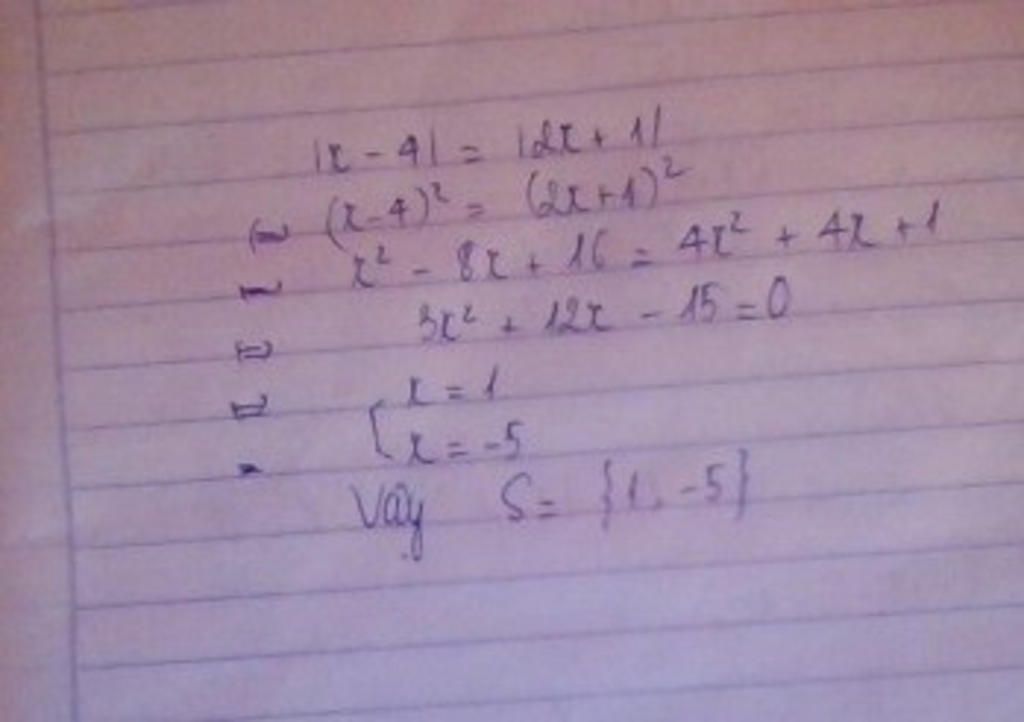 |x - 4| = |2x + 1|
⇔ (x-4)² = (2x+1)²
⇔ x² - 8x + 16 = 4x² + 4x + 1
⇔ 3x² + 12x - 15 = 0
⇔ [ x = 1
x = -5
Vậy S = {1, -5}